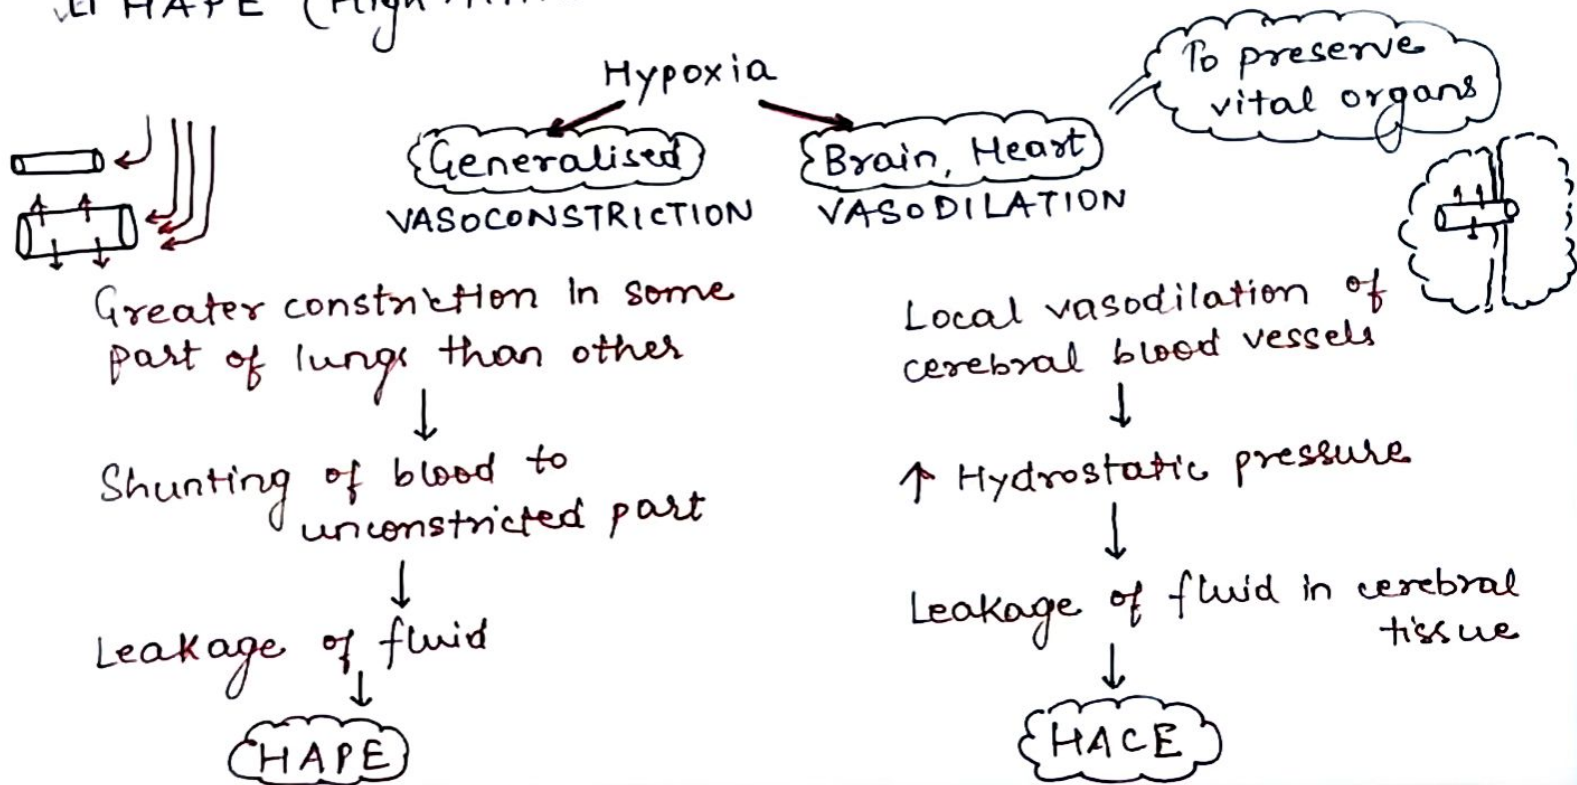 HAPE (High
Hypoxia
To preserve
vital organs
Generalised
VASOCONSTRICTION
Brain, Heart
VASODILATION
Greater constriction in some
part of lungs than other
↓
Shunting of blood to
unconstricted part
↓
Leakage of fluid
↓
HAPE
Local vasodilation of
cerebral blood vessels
↓
↑ Hydrostatic pressure
↓
Leakage of fluid in cerebral
tissue
↓
HACE